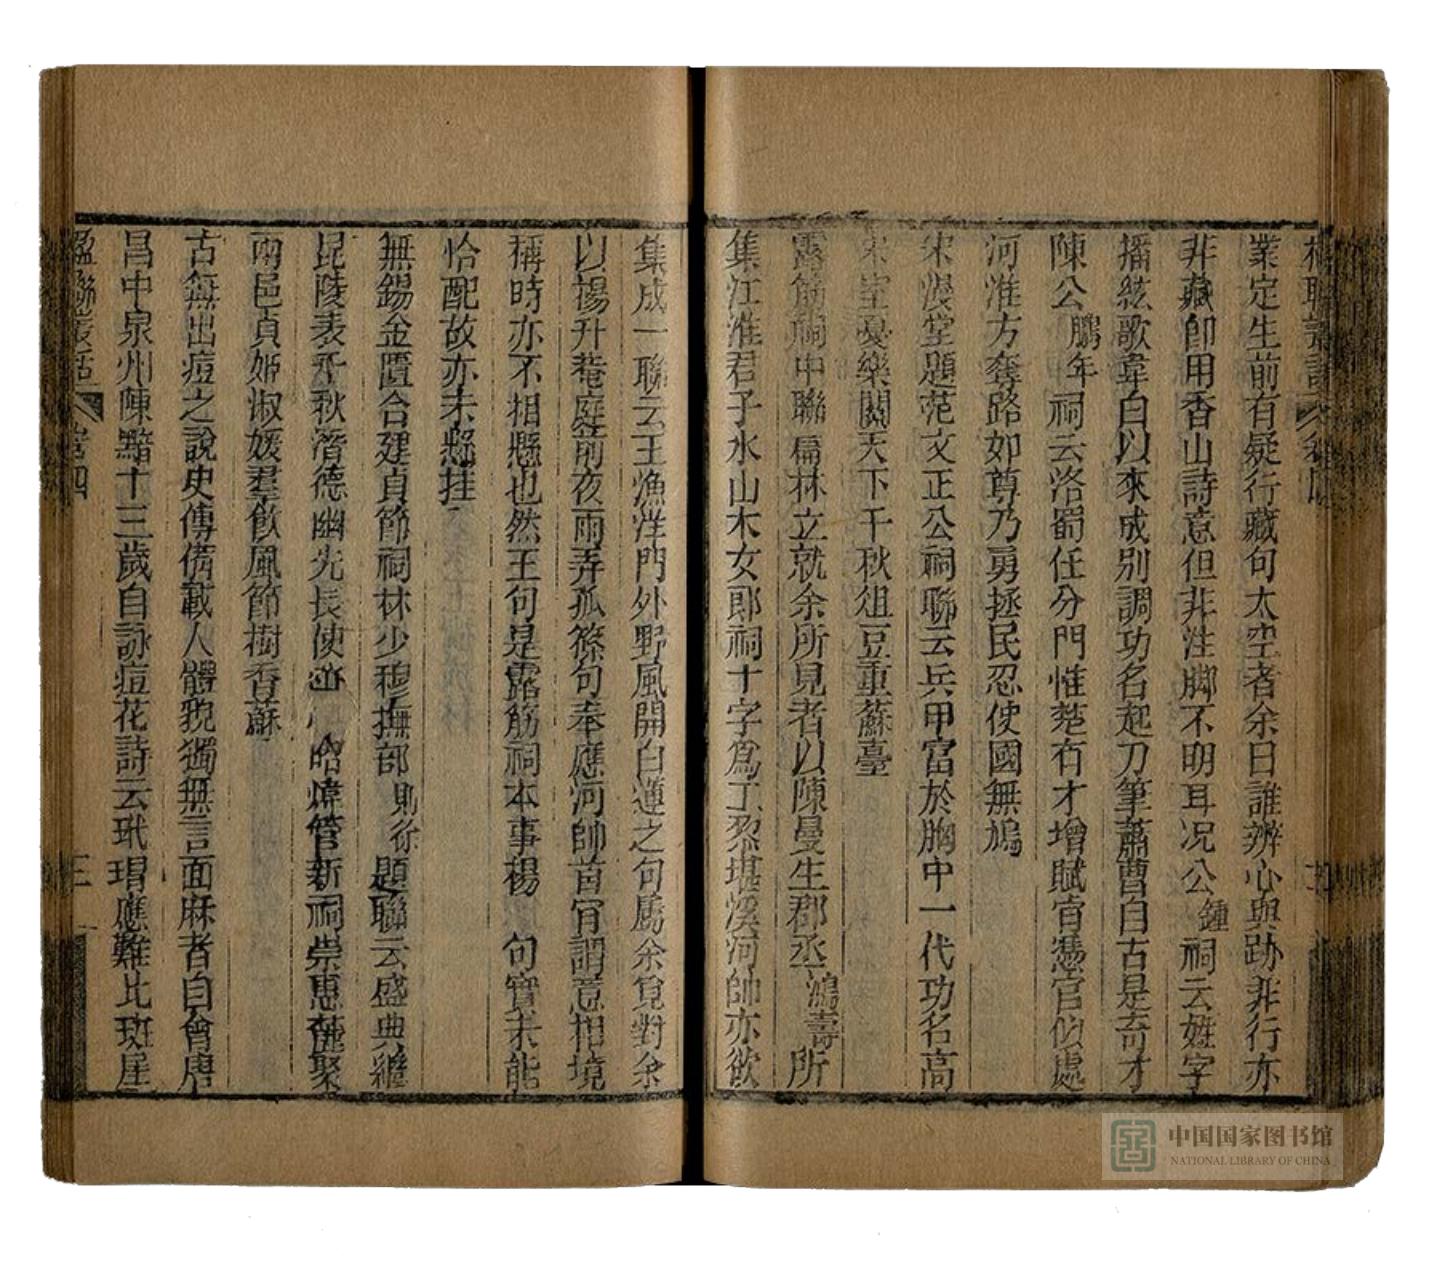 楹聯叢話 卷四
業定生前有疑行藏句太空者余曰誰辨心與跡非行亦
非藏卽用香山詩意但非注脚不明耳况公鍾祠云姓字
播絃歌韋白以來成別調功名起刀筆蕭曹自古是奇才
陳公鵬年祠云洛蜀任分門惟楚有才增賦官慿官似處
河淮方奪路如尊乃勇拯民忍使國無鳩
宋漫堂題范文正公祠聯云兵甲富於胸中一代功名高
宋室憂樂關天下千秋俎豆重蘇臺
露筋祠中聯扁林立就余所見者以陳曼生郡丞鴻壽所
集江淮君子水山木女郎祠十字爲工黎堪溪河帥亦欲
集成一聯云王漁洋門外野風開白蓮之句屬余覓對余
以楊升菴庭前夜雨弄孤篠句奉應河帥首肎謂意相境
稱時亦不相懸也然王句是露筋祠本事楊 句實未能
恰配故亦未懸挂
無錫金匱合建貞節祠林少穆撫部則徐題聯云盛典繼
昆陵表千秋潛德幽光長使 昭煒管新祠崇惠麓聚
兩邑貞姬淑媛羣歆風節樹香蘇
古無出痘之說史傳備載人體貌獨無言面麻者自會唐
昌中泉州陳黯十三歲自詠痘花詩云玳瑁應難比斑犀
楹聯叢話 卷四 三